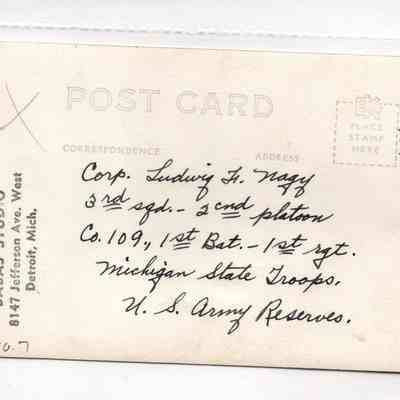 POST CARD
PLACE
STAMP
HERE
CORRESPONDENCE
ADDRESS
Corp. Ludwig Fr. Nagy
3rd sqd. - 2cnd platoon
Co. 109., 1st Bat. - 1st rgt.
Michigan State Troops.
U. S. Army Reserves.
STUDIO
8147 Jefferson Ave. West
Detroit, Mich.